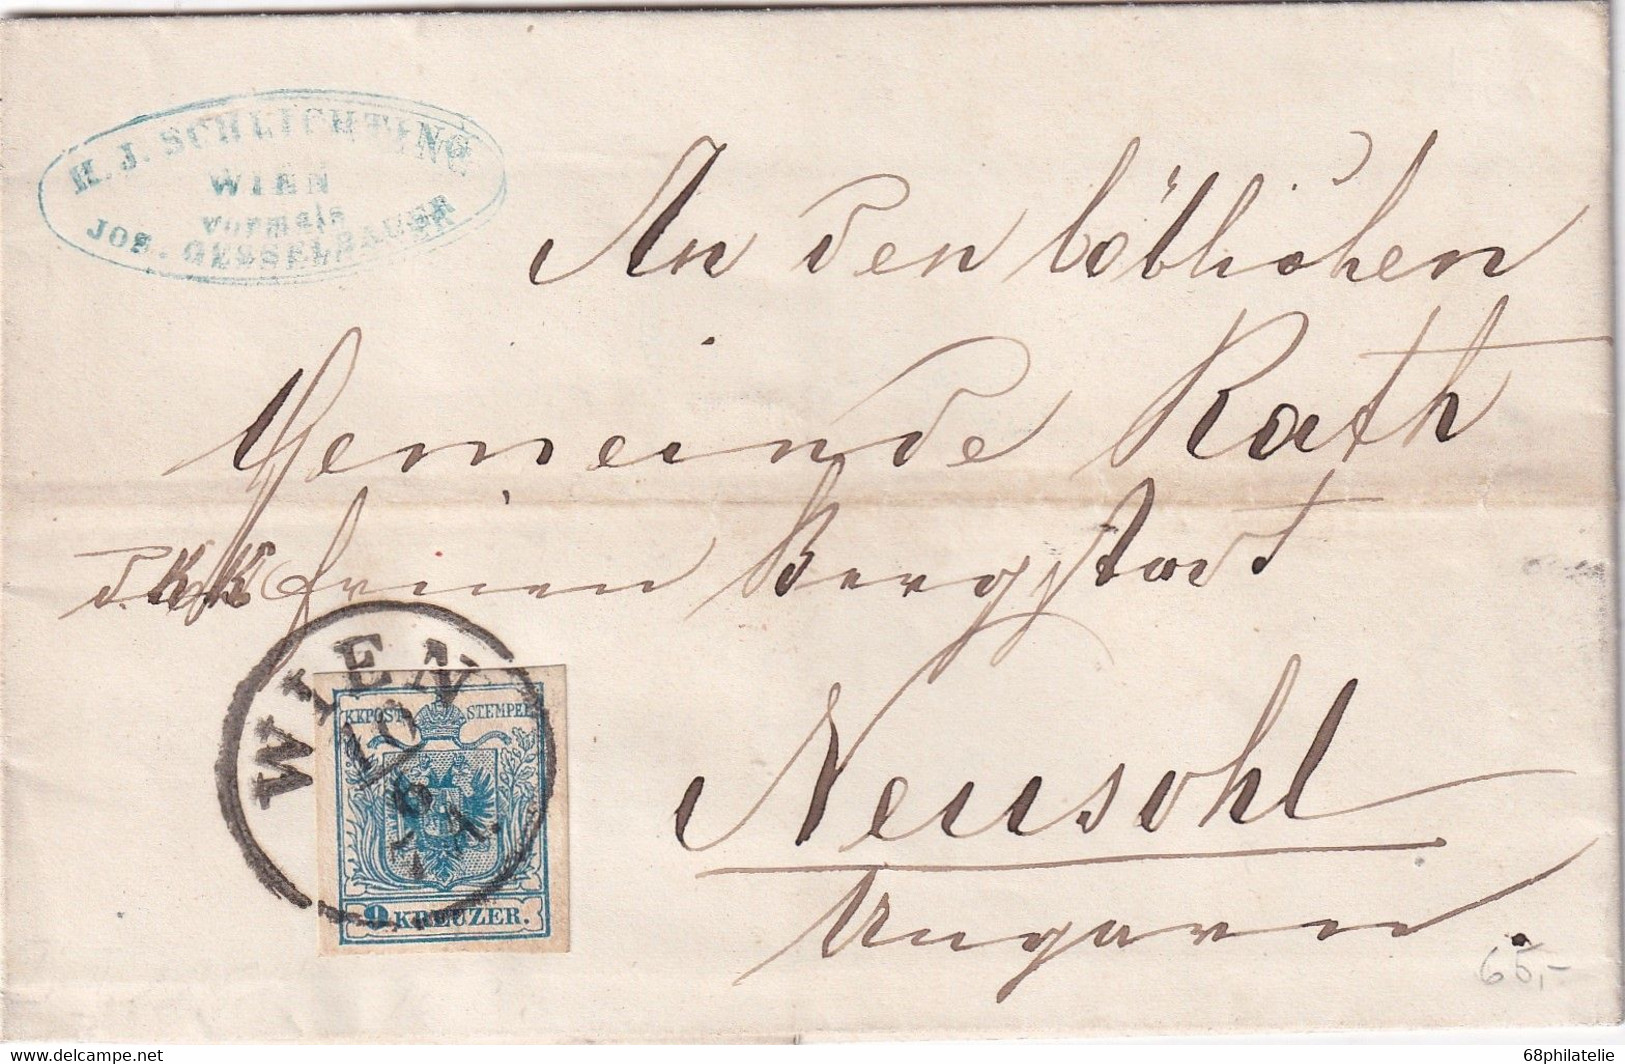 H. J. SCHLICHTING
WIEN
vormals
JOS. GESSELBAUER
An den löblichen
Gemeinde Rath
d. KK freien Bergstadt
Neusohl
Ungarn.
WIEN
10
6
KKPOST-STEMPEL
9 KREUZER.
65,-
delcampe.net
68philatelie